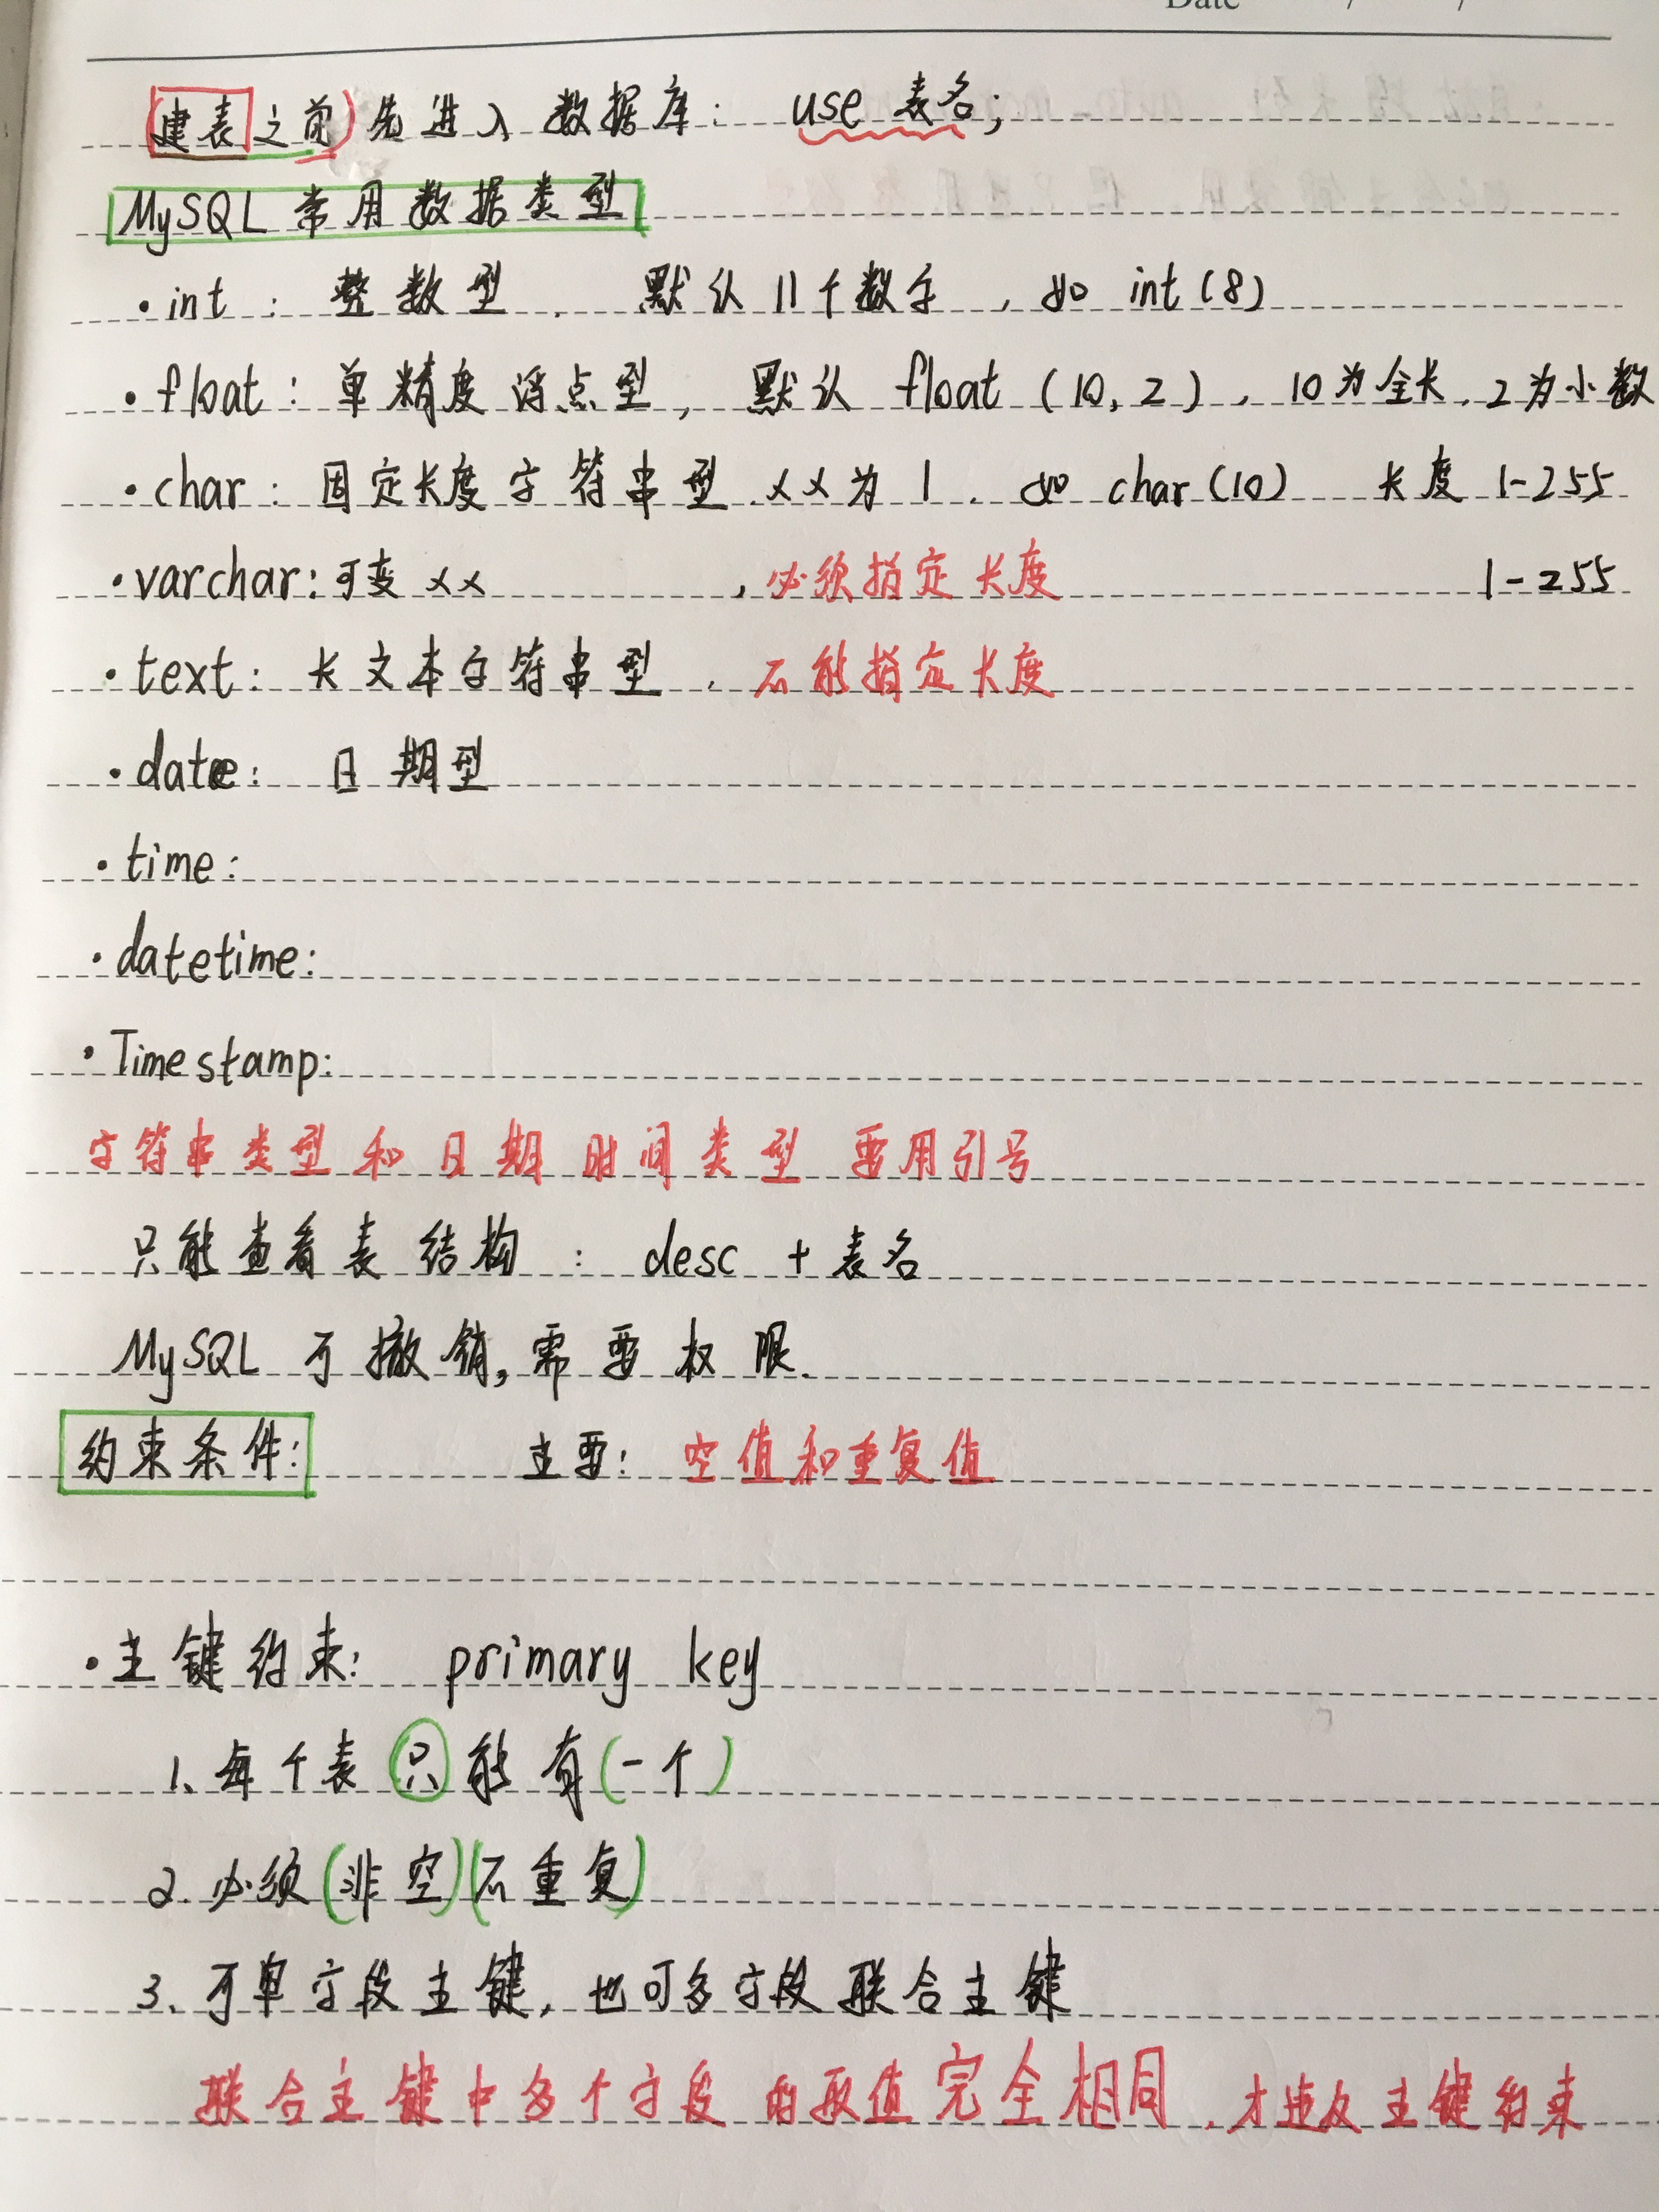 Date / /
建表之前先进入数据库: use 表名;
MySQL 常用数据类型
·int: 整数型, 默认11个数字, 如 int(8)
·float: 单精度浮点型, 默认 float(10,2), 10为全长,2为小数
·char: 固定长度字符串型 ××为1. 如 char(10) 长度 1-255
·varchar: 可变 ×× ,必须指定长度 1-255
·text: 长文本字符串型, 不能指定长度
·date: 日期型
·time:
·datetime:
·Timestamp:
字符串类型和日期时间类型要用引号
只能查看表结构: desc + 表名
MySQL 可撤销,需要权限.
约束条件: 主要: 空值和重复值
·主键约束: primary key
1、每个表只能有(一个)
2.必须(非空)(不重复)
3、可单字段主键,也可多字段联合主键
联合主键中多个字段的取值完全相同,才违反主键约束